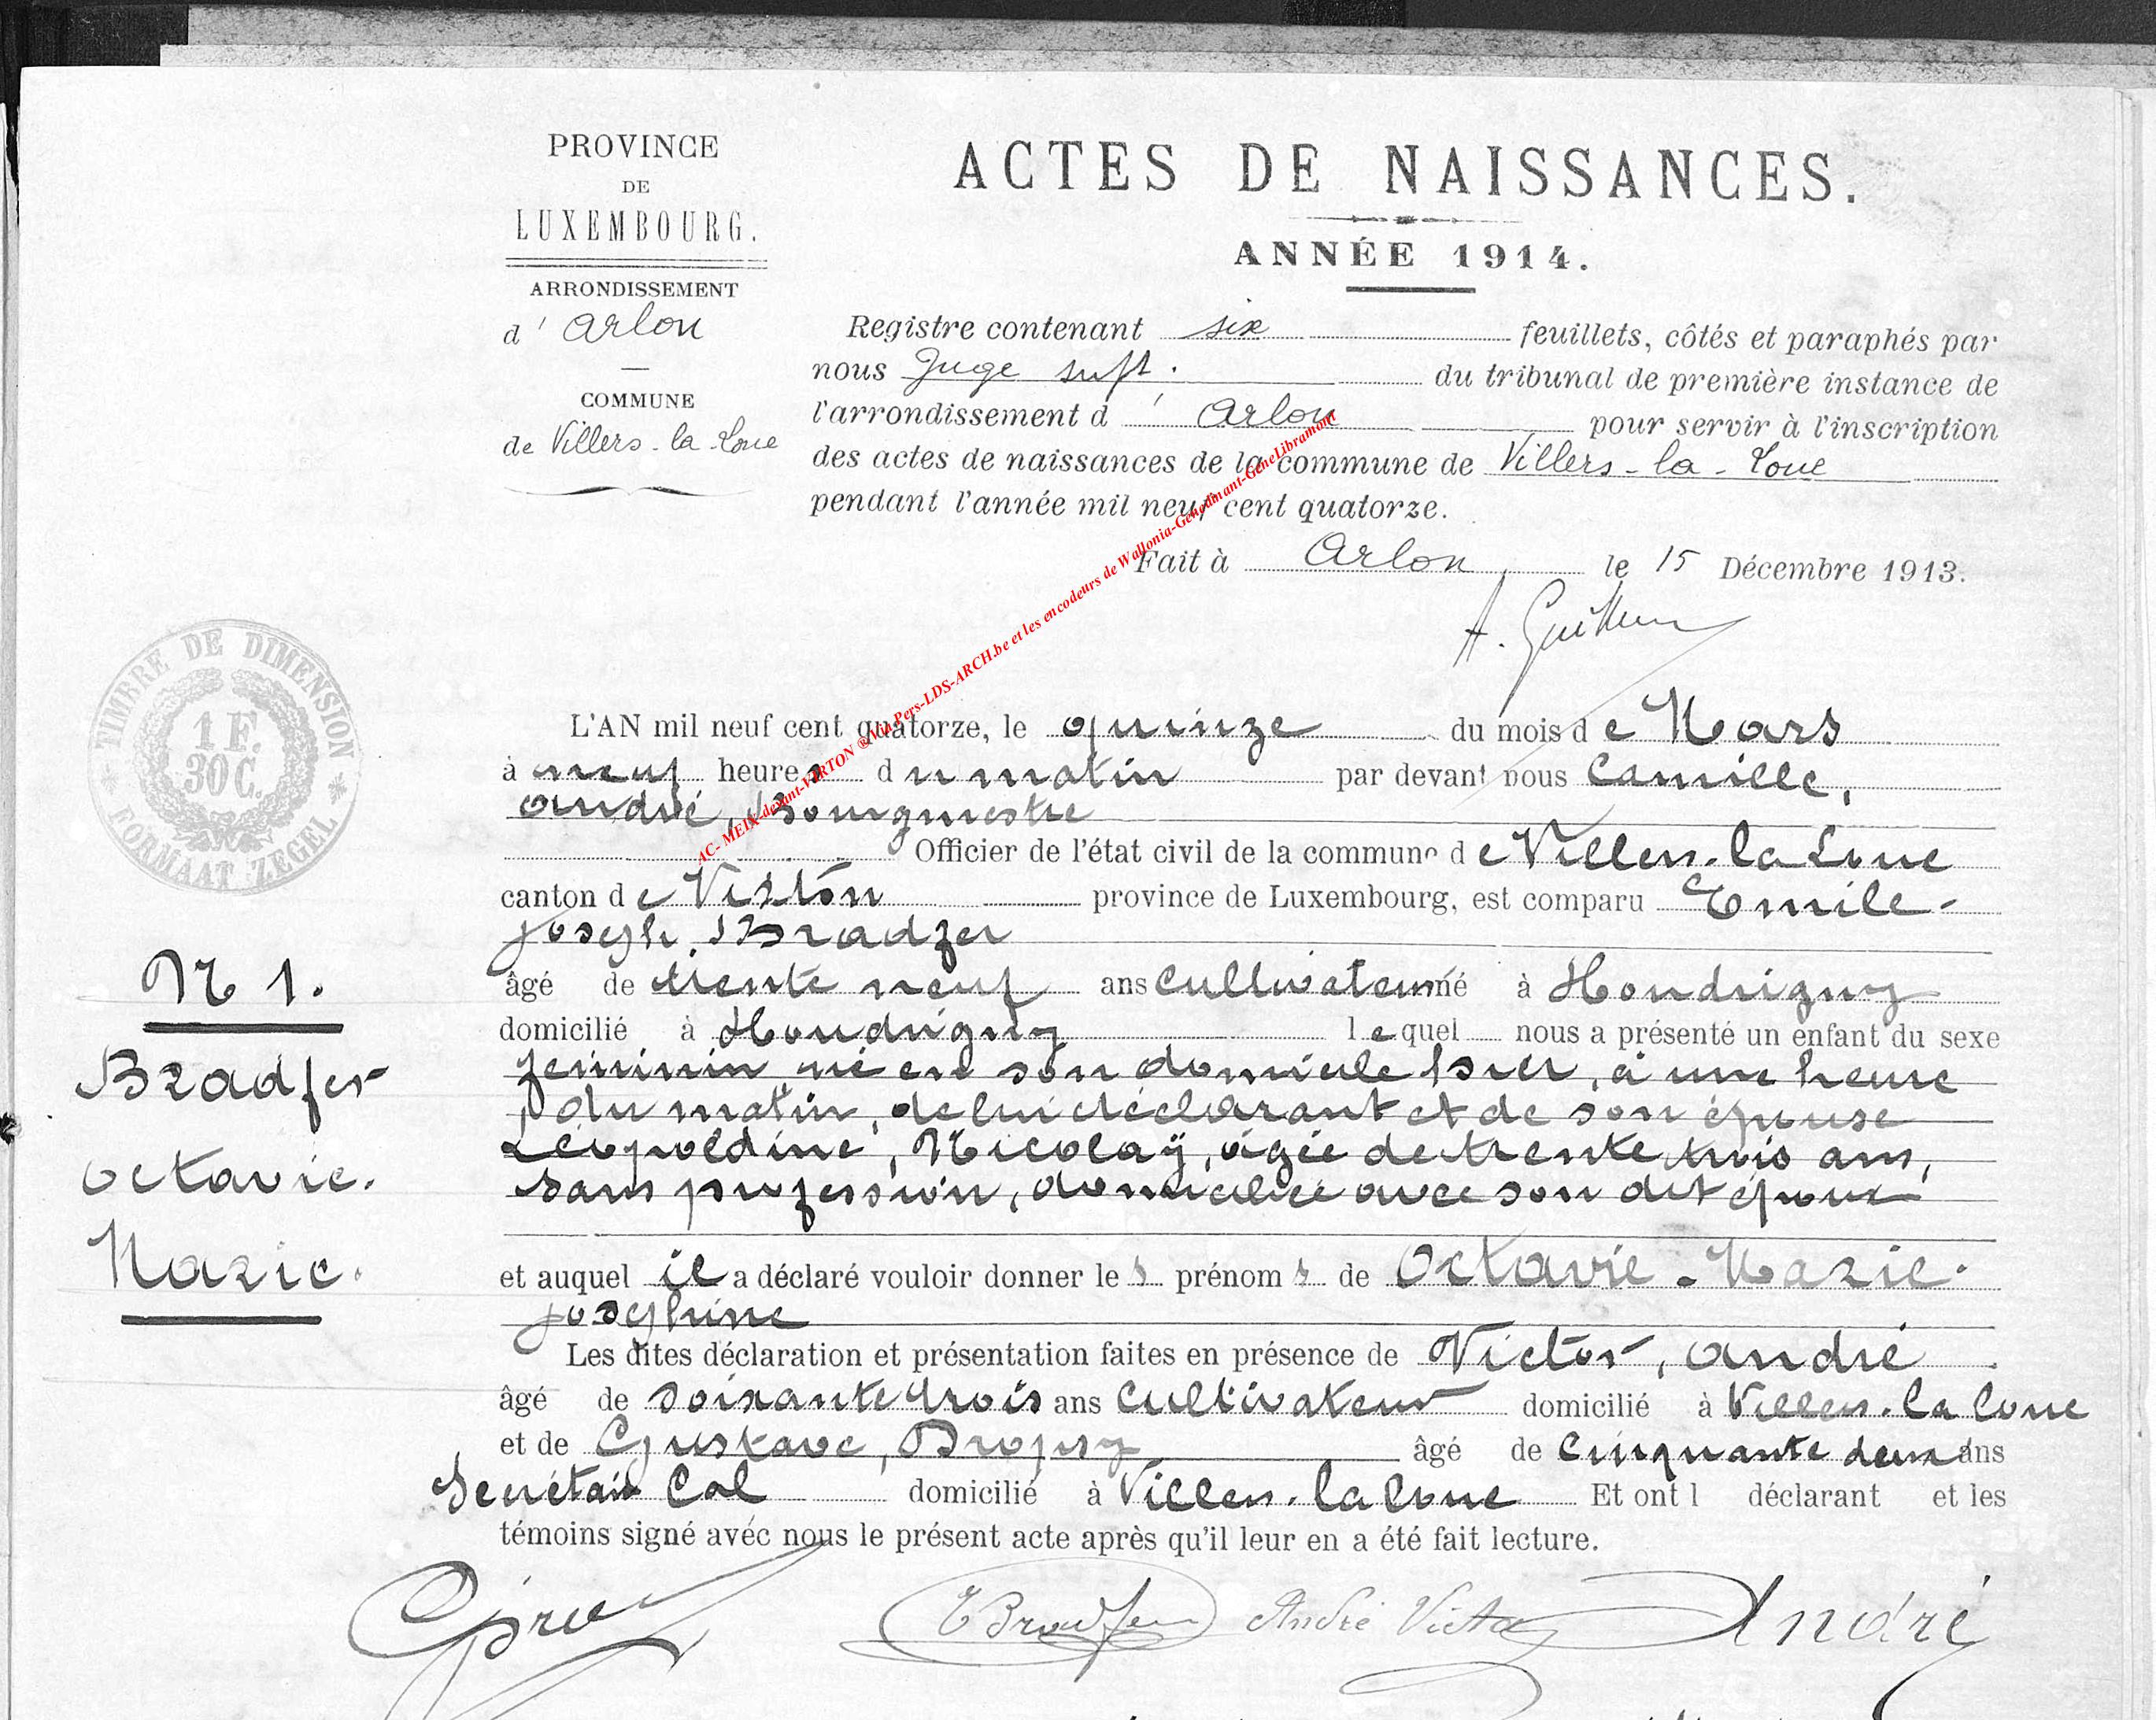 PROVINCE
DE
LUXEMBOURG.
ARRONDISSEMENT
d' Arlon
COMMUNE
de Villers-la-Loue
ACTES DE NAISSANCES.
ANNÉE 1914.
Registre contenant six feuillets, côtés et paraphés par
nous Juge supt. du tribunal de première instance de
l'arrondissement d' Arlon pour servir à l'inscription
des actes de naissances de la commune de Villers-la-Loue
pendant l'année mil neuf cent quatorze.
Fait à Arlon le 15 Décembre 1913.
TIMBRE DE DIMENSION
1 F.
30 C.
FORMAAT ZEGEL
AC- MEIX-devant-VIRTON ® Via Pers-LDS-ARCH.be et les encodeurs de Wallonia-Genedinant-GeneLibramont
L'AN mil neuf cent quatorze, le quinze du mois de Mars
à neuf heures du matin par devant nous Camille,
André, Bourgmestre
Officier de l'état civil de la commune de Villers-la-Loue
canton de Virton province de Luxembourg, est comparu Emile-
Joseph, Bradfer
âgé de trente neuf ans cultivateur né à Houdrigny
domicilié à Houdrigny lequel nous a présenté un enfant du sexe
féminin né en son domicile hier, à une heure
du matin, de lui déclarant et de son épouse
Léopoldine, Nicolaÿ, âgée de trente trois ans,
sans profession, domiciliée avec son dit époux
et auquel il a déclaré vouloir donner les prénoms de Octavie-Marie-
Joséphine
Les dites déclaration et présentation faites en présence de Victor, André
âgé de soixante trois ans cultivateur domicilié à Villers-la-Loue
et de Gustave, Dropsy âgé de cinquante deux ans
Secrétaire Cal domicilié à Villers-la-Loue Et ont l déclarant et les
témoins signé avec nous le présent acte après qu'il leur en a été fait lecture.
N 1.
Bradfer
Octavie.
Marie.
E Bradfer André Victor André